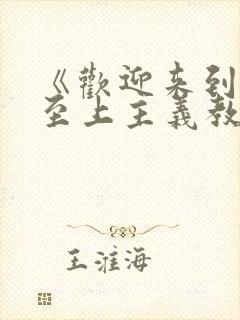 《歡迎来到
至上主義教
王淮海